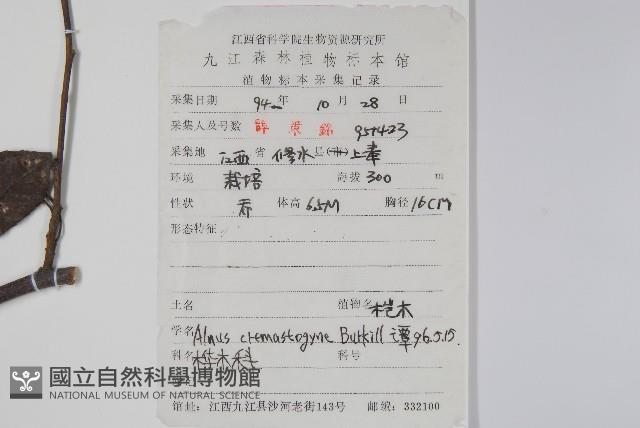 江西省科学院生物资源研究所
九江森林植物标本馆
植物标本采集记录
采集日期 94 年 10 月 28 日
采集人及号数 951423
采集地 江西 省 修水 县(市) 上奉
环境 栽培 海拔 300 m
性状 乔 体高 6.5M 胸径 16CM
形态特征
土名 植物名 桤木
学名 Alnus cremastogyne Burkill 谭 96.5.15.
科名 桦木科 科号
國立自然科學博物館
NATIONAL MUSEUM OF NATURAL SCIENCE
馆址：江西九江县沙河老街143号 邮编：332100